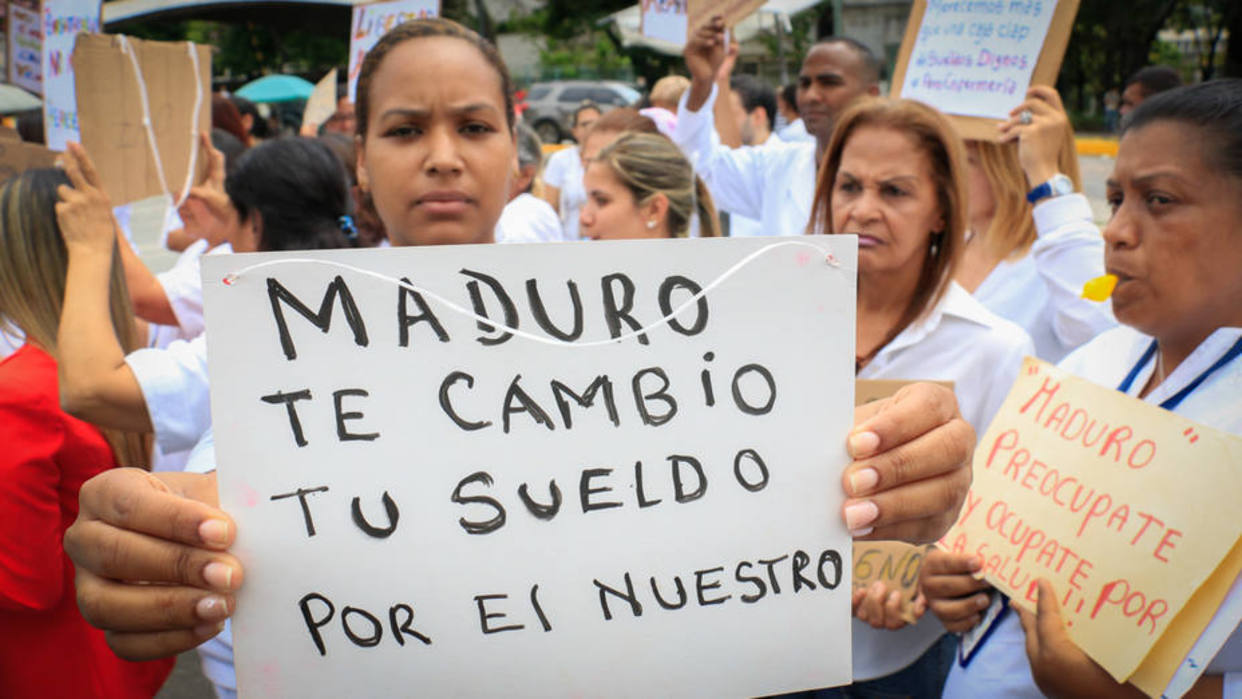 MADURO
TE CAMBiO
TU SUELDO
POR El NUESTRO
"MADURO"
PREOCUPATE
Y OCUPATE
POR
LA SALUD!!
Merecemos más
que una caja clap
#Sueldos Dignos